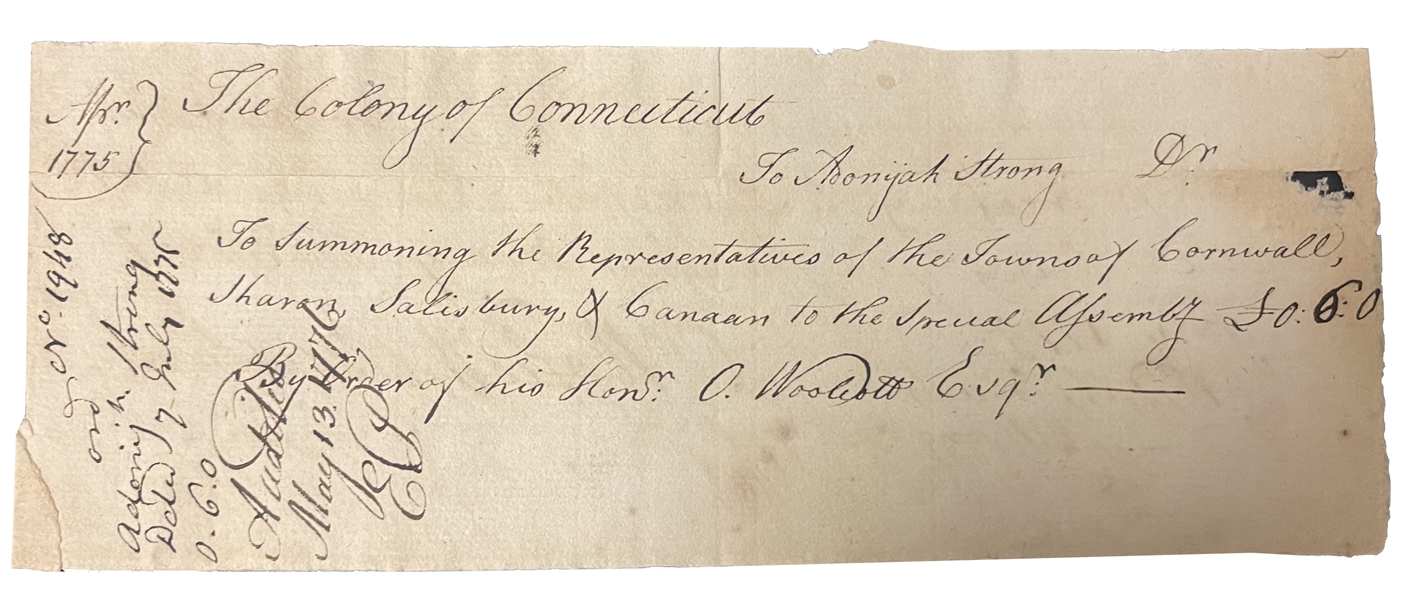 Apr.
1775
The Colony of Connecticut
To Adonijah Strong Dr
To Summoning the Representatives of the Towns of Cornwall,
Sharon, Salisbury, & Canaan to the Special Assembly £0:6:0
By Order of his Honr. O. Woolcott Esqr.
No. 1948
ord
Adonijh. Strong
Dated 7 July 1775
0.6.0
Audited
May 13